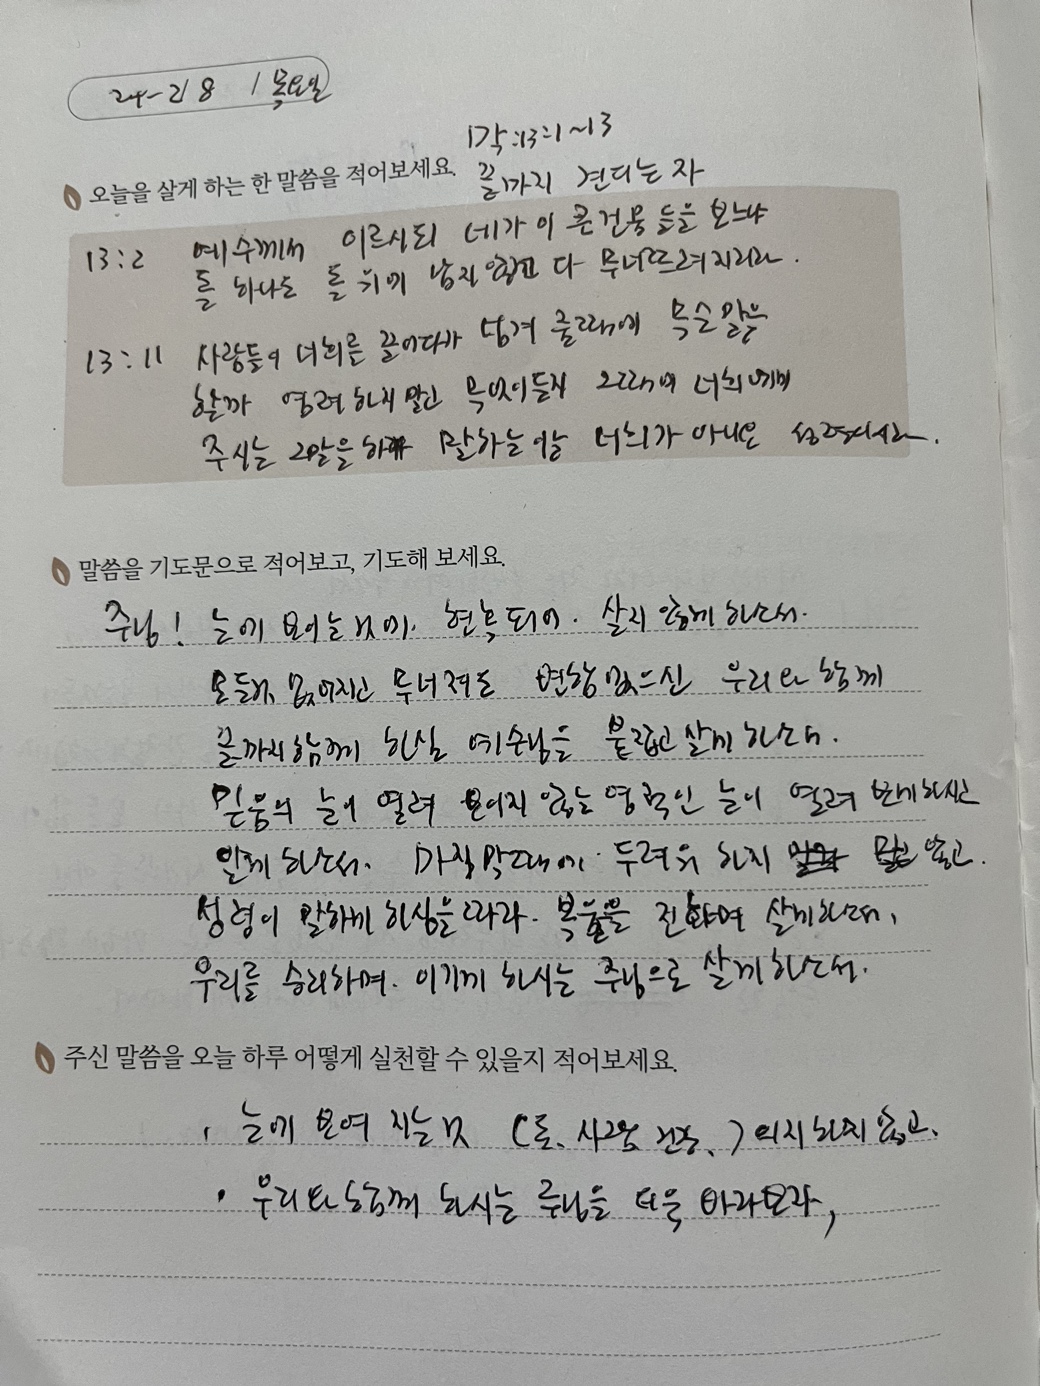 24-2/8 / 목요일
막:13:1~13
오늘을 살게 하는 한 말씀을 적어보세요. 끝까지 견디는 자
13:2 예수께서 이르시되 네가 이 큰건물 들을 보느냐
돌 하나도 돌 위에 남지 않고 다 무너뜨려지리라.
13:11 사람들이 너희를 끌어다가 넘겨 줄때에 무슨말을
할까 염려하지말고 무엇이든지 그때에 너희에게
주시는 그말을 하 말하는이는 너희가 아니요 성령이시라.
말씀을 기도문으로 적어보고, 기도해 보세요.
주님! 눈에 보이는것에. 현혹되어. 살지 않게 하소서.
모든게 없어지고 무너져도 변함없으신 우리와 함께
끝까지함께 하실 예수님을 붙잡고 살게 하소서.
믿음의 눈이 열려 보이지 않는 영적인 눈이 열려 보게하시고
알게 하소서. 마지막때에 두려워 하지 않고.
성령이 말하게 하심을 따라. 복음을 전하며 살게하소서.
우리를 승리하며. 이기게 하시는 주님으로 살게하소서.
주신 말씀을 오늘 하루 어떻게 실천할 수 있을지 적어보세요.
· 눈에 보여 지는것 (돈. 사람. 건강.) 의지하지 않고.
· 우리와 함께 하시는 주님을 더욱 바라보자,